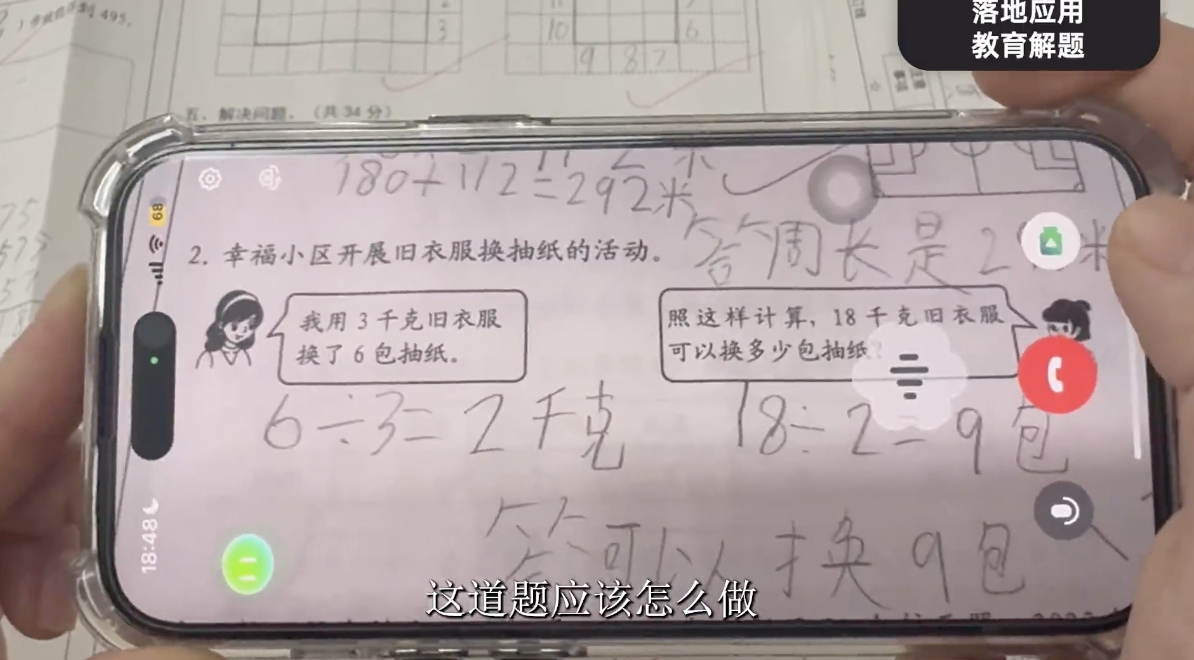 落地应用
教育解题
495。
3
10
6
9 8 7
五、解决问题。（共 34 分）
180+112=292米
2. 幸福小区开展旧衣服换抽纸的活动。
答周长是2
米
我用 3 千克旧衣服
换了 6 包抽纸。
照这样计算，18 千克旧衣服
可以换多少包抽纸
6÷3=2千克
18÷2=9包
答可以换9包
68
18:48
这道题应该怎么做